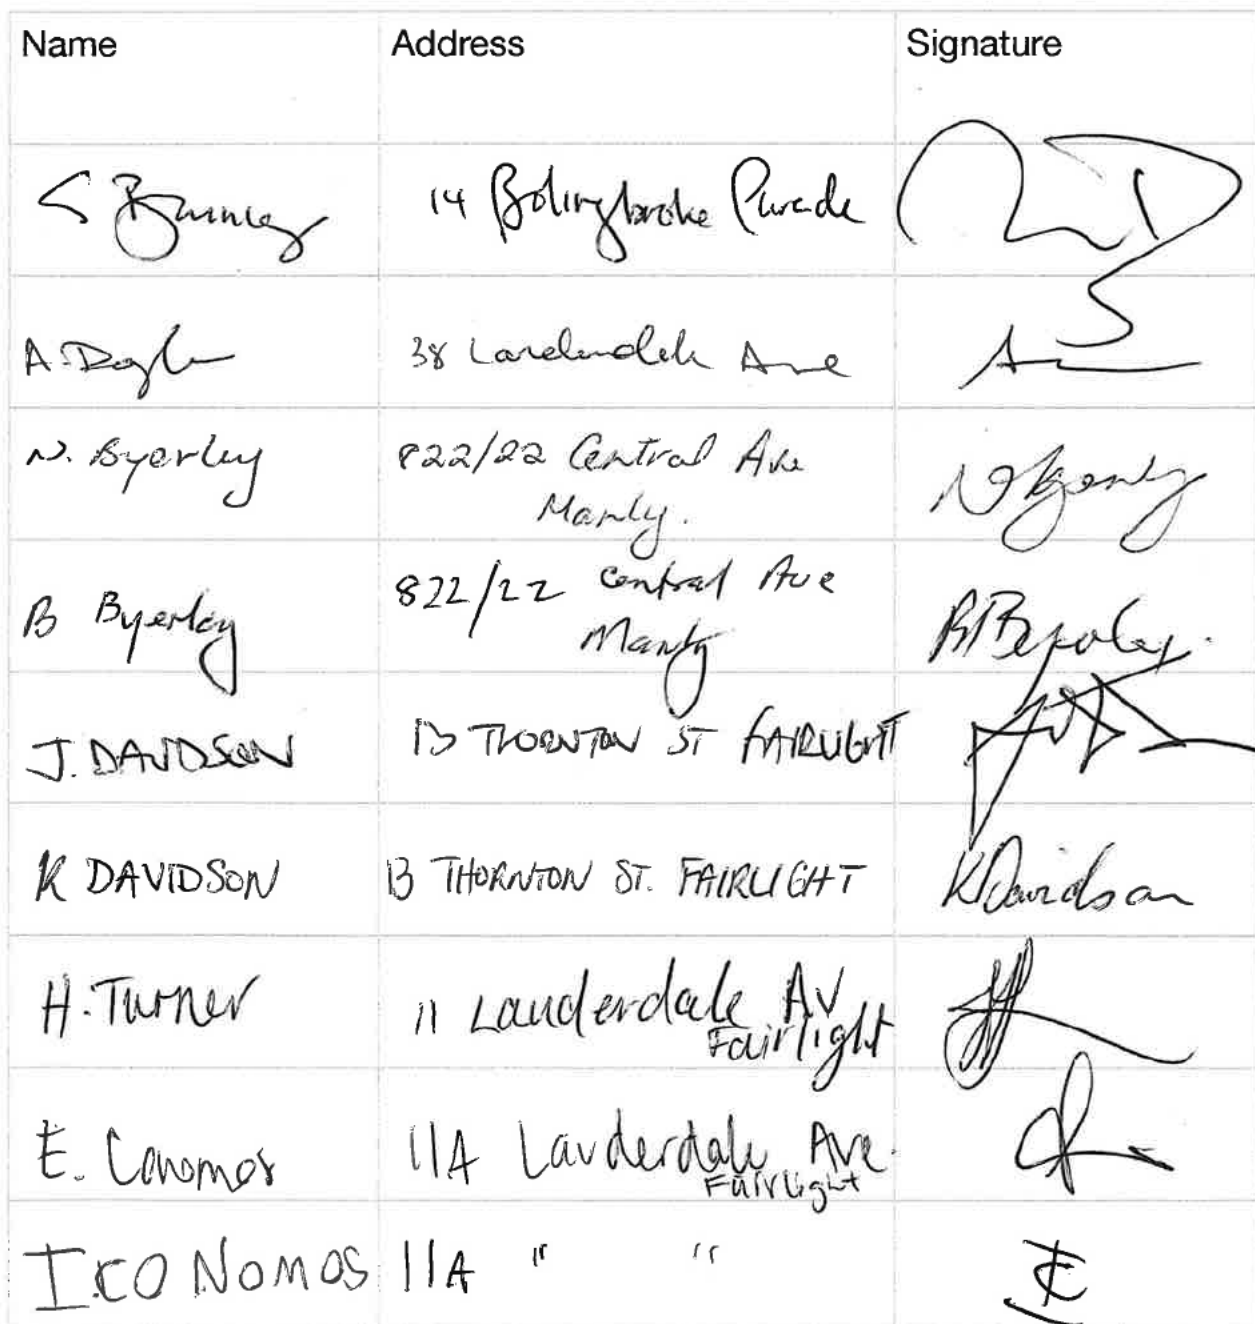 Name Address Signature
14 Bolingbroke Parade
A. Doyle 38 Lauderdale Ave
N. Byerley 822/22 Central Ave
Manly.
B Byerley 822/22 Central Ave
Manly
J. DAVIDSON 13 THORNTON ST FAIRLIGHT
K DAVIDSON 13 THORNTON ST. FAIRLIGHT KDavidson
H. Turner 11 Lauderdale AV
Fairlight
E. Conomos 11A Lauderdale Ave.
Fairlight
I. CONOMOS 11A " "